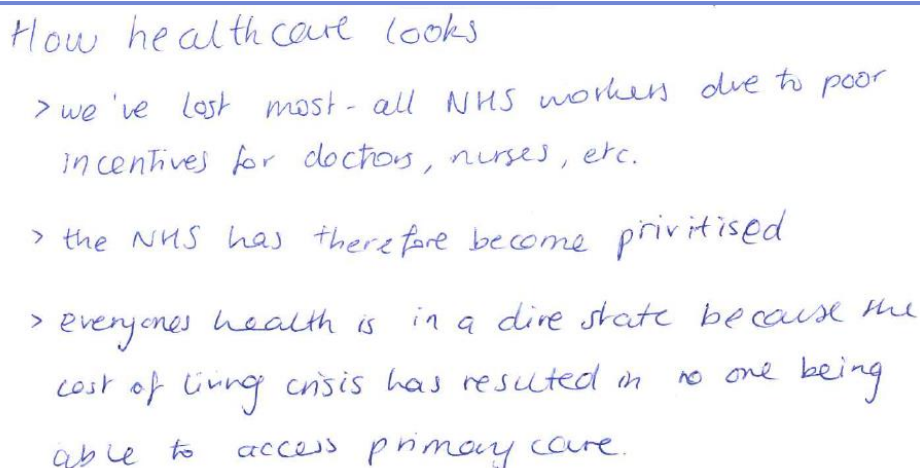 How healthcare looks
> we've lost most-all NHS workers due to poor
incentives for doctors, nurses, etc.
> the NHS has therefore become privitised
> everyones health is in a dire state because the
cost of living crisis has resulted in no one being
able to access primary care.